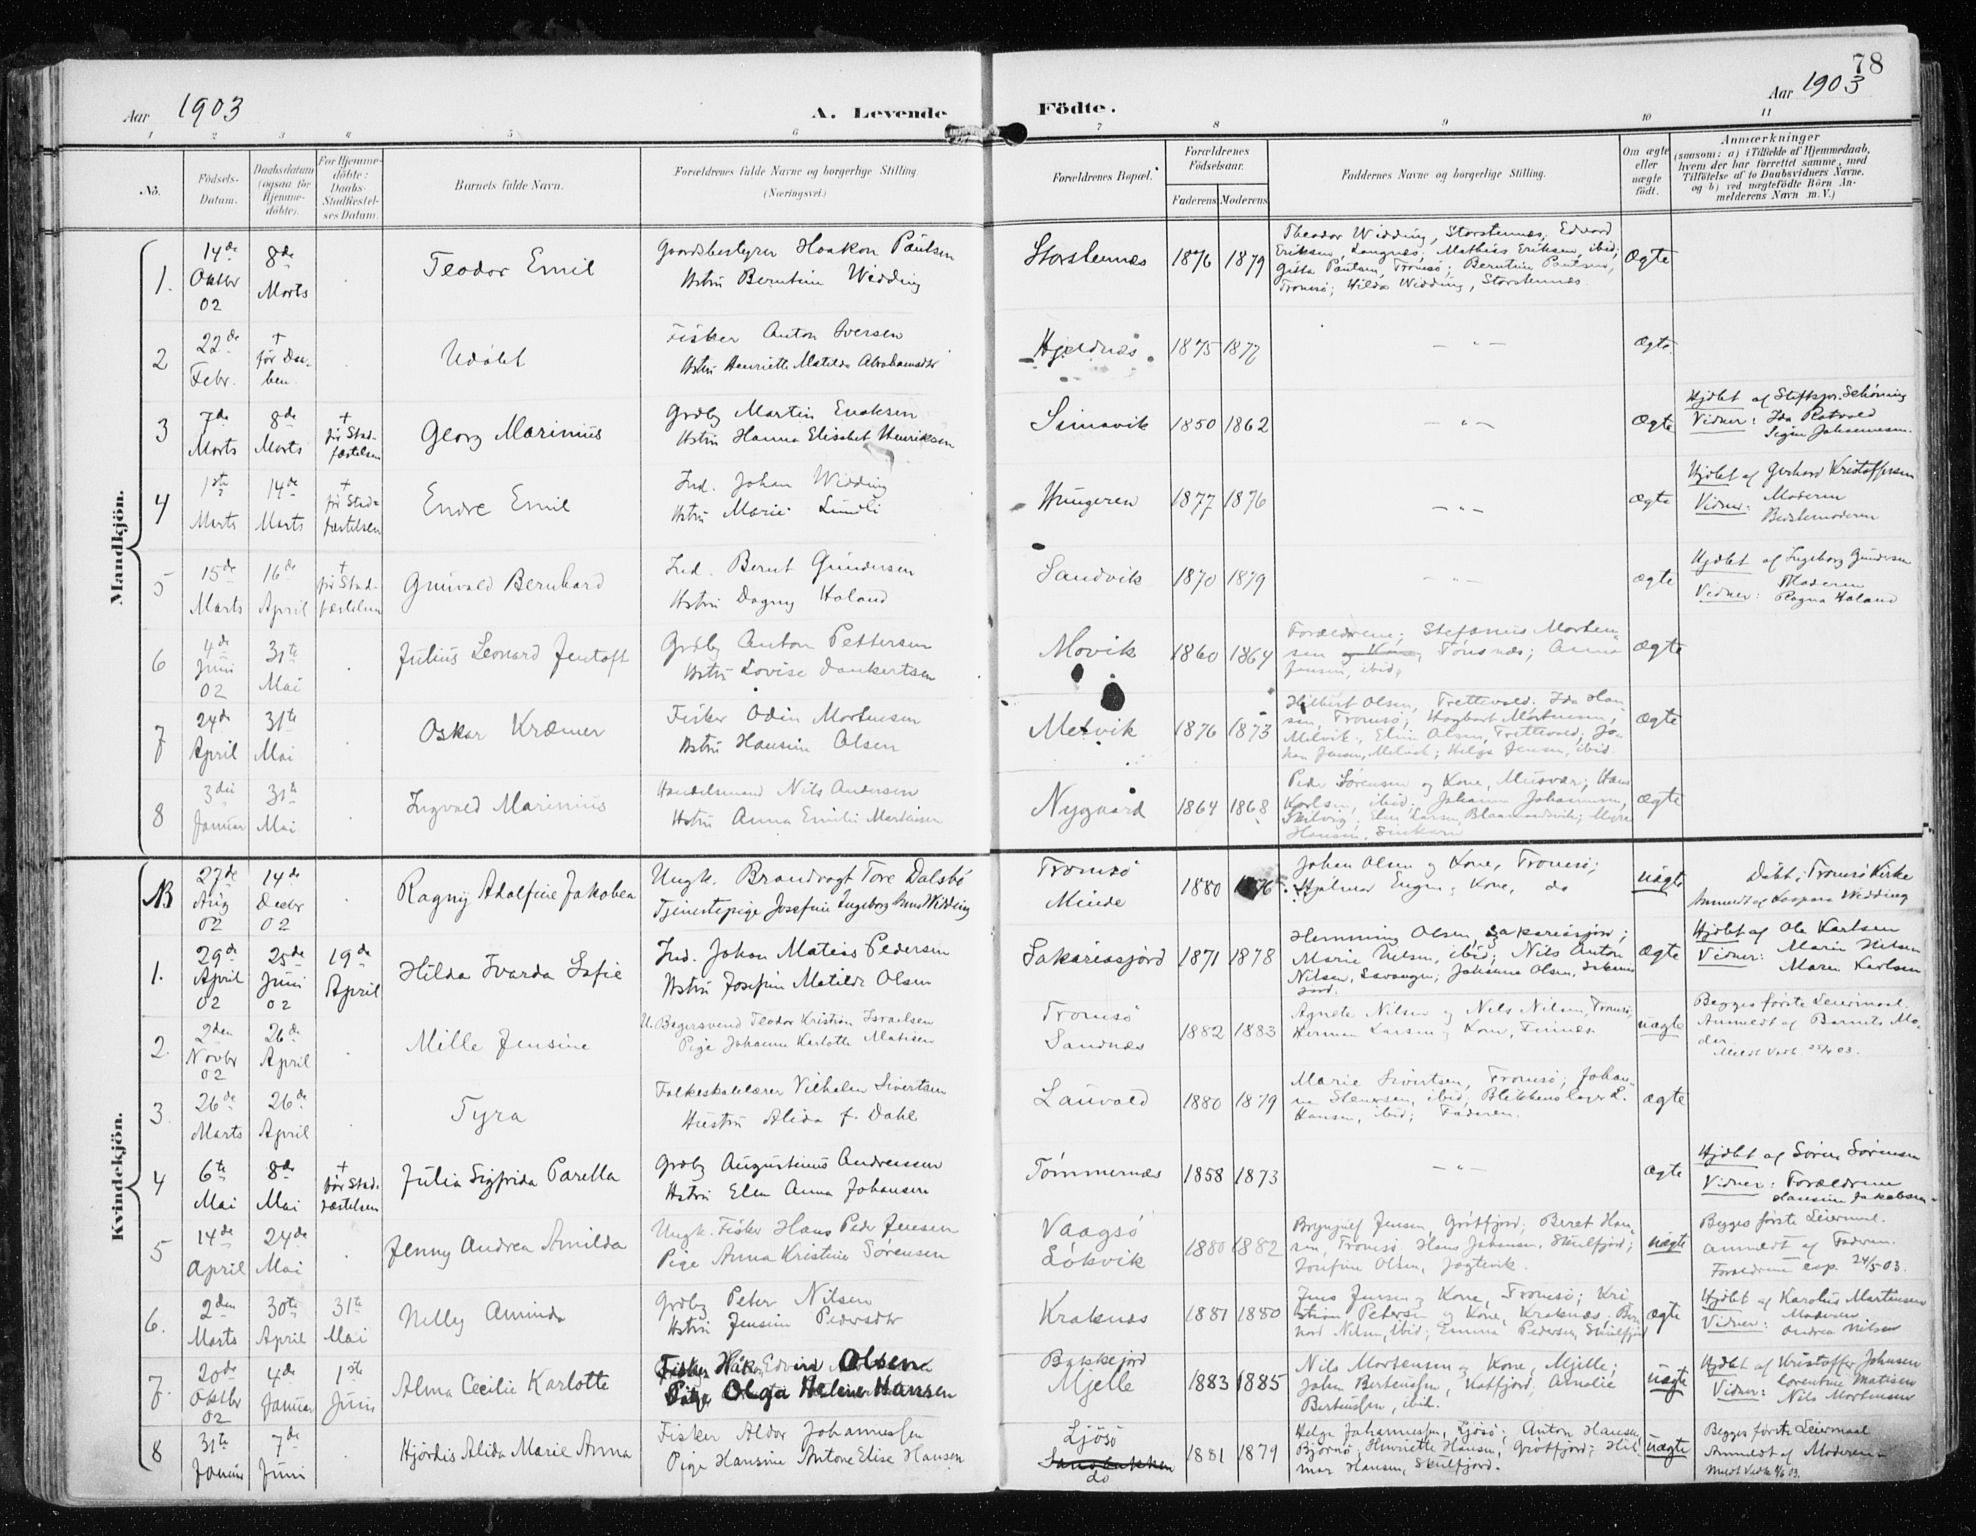 78
Aar 1903
A. Levende Födte.
Aar 1903
1 2 3 4 5 6 7 8 9 10 11
No.
Födsels-Datum.
Daabsdatum (ogsaa for Hjemme-döbte).
For Hjemme-döbte: Daabs-Stadfæstel-ses Datum.
Barnets fulde Navn.
Forældrenes fulde Navne og borgerlige Stilling. (Næringsvei.)
Forældrenes Bopæl.
Forældrenes Födselsaar.
Faderens Moderens
Faddernes Navne og borgerlige Stilling.
Om ægte eller uægte födt.
Anmærkninger
(saasom: a) i Tilfælde af Hjemmedaab,
hvem der har forrettet samme, med
Tilföielse af to Daabsvidners Navne,
og b) ved uægtefödte Börn An-
melderens Navn m. V.)
Mandkjön.
1. 14de Oktbr 02 8de Marts Teodor Emil
Gaardsbestyrer Haakon Paulsen
Hstru Berntine Widding
Storstennæs 1876 1879
Theodor Widding, Storstennæs, Edvard
Eriksen, Langnæs; Mathias Eriksen, ibid;
Gitta Paulsen, Tromsö; Berntine Paulsen,
Tromsö; Hilda Widding, Storstennæs
Ægte
2 22de Febr. + før Daa-ben. Udöbt
Fisker Anton Iversen
Hstru Henriette Matilde Abrahamsdtr
Hjeldnæs 1875 1877 — " — ægte
3 7de Marts 8de Marts + før Stad-fæstelsen Georg Marinius
Grdbr Martin Enoksen
Hstru Hanna Elisabet Henriksen
Simavik 1850 1862 — " — Ægte
Hjdbt af Stiftsjor. Schöning
Vidner: Ida Ratvold
Signe Johannesen.
4 1ste Marts 14de Marts + før Stad-fæstelsen Endre Emil
Ind. Johan Widding
Hstru Marie Lundli
Hungeren 1877 1876 — " — ægte
Hjdbt af Gerhard Kristoffersen
Vidner: Moderen
Bedstemoderen
5 15de Marts 16de April + før Stad-fæstelsen Gunvald Bernhard
Ind. Bernt Gundersen
Hstru Dagny Haland
Sandvik 1870 1879 — " — ægte
Hjdbt af Ingeborg Gundersen
Moderen
Vidner: Ragna Haland
6 4de Juni 02 31te Mai Julius Leonard Jentoft
Grdbr Anton Pettersen
Hstru Lovise Dankertsen
Movik 1860 1864
Forældrene; Stefanus Morten-
sen og Kone, Tönsnæs; Anna
Jensen, ibid.
Ægte
7 24de April 31te Mai Oskar Kræmer
Fisker Odin Mortensen
Hstru Hansine Olsen
Melvik 1876 1873
Hilbert Olsen, Trettevold. Ida Han-
sen, Tromsö; Hagbart Mortensen,
Melvik, Elin Olsen, Trettevold; Jo-
han Jensen, Melvik; Helga Jensen, ibid.
Ægte
8 3die Januar 31te Mai Ingvald Marinius
Handelsmand Nils Andersen
Hstru Anna Emilie Mathisen
Nygaard 1864 1868
Peder Sörensen og Kone, Musvær; Hans
Karlsen, ibid; Johanna Johannesen,
Elen Larsen, Blaamandsvik;
Hansen,
Ægte
Kvindekjön.
NB 27de Aug 02 14de Decbr 02 Ragny Adolfine Jakobea
Ungk. Brandvagt Tore Dalsbö
Tjenestepige Josefine Ingeborg Widding
Tromsö
Minde 1880 1876
Johan Olsen og Kone, Tromsö;
Hjalmar Engen og Kone, do
Uægte
Döbt i Tromsö Kirke
Anmeldt af Kaspara Widding
1. 29de April 02 25de Juni 02 19de April Hilda Ivarda Sofie
Ind. Johan Mateas Pedersen
Hstru Josefine Matilde Olsen
Sakariasjord 1871 1878
Hemming Olsen, Sakariasjord;
Marie Nilsen, ibid; Nils Anton
Nilsen, Lavangen; Johanna Olsen, Sakarias
jord.
Ægte
Hjdbt af Ole Karlsen
Vidner: Marie Nilsen
Maren Karlsen
2. 2den Novbr 02 26de April Mille Jensine
U. Bagersvend Teodor Kristian Israelsen
Pige Johanna Karlotte Matisen
Tromsö
Sandnæs 1882 1883
Agnete Nilsen og Nils Nilsen, Tromsö,
Herman Larsen og Kone, Finnæs
uægte
Begges förste Leiermaal.
Anmeldt af Barnets Mo-
der
3. 26de Marts 26de April Tyra
Folkeskolelærer Vilhelm Sivertsen
Hustru Alida f. Dahl
Lauvold 1880 1879
Marie Sivertsen, Tromsö; Johan-
na Stenersen, ibid; Blikkenslager L.
Hansen, ibid; Faderen.
Ægte
4 6te Mai 8de Mai + før Stad-fæstelsen Julia Sigfrida Parella
Grdbr Augustinus Andreassen
Hstru Elen Anna Johansen
Tömmernæs 1858 1873 — " — ægte
Hjdbt af Sören Sörensen
Vidner: Forældrene
Hansine Jakobsen
5 14de April 24de Mai Jenny Andrea Amilda
Ungk. Fisker Hans Peder Jensen
Pige Anna Kristine Sörensen
Vaagsö
Lökvik 1880 1882
Brynjulf Jensen, Grötfjord; Beret Han-
sen, Tromsö, Hans Johansen, Skulfjord;
Josefine Olsen, Jægtevik.
uægte
Begges förste Leiermaal.
anmeldt af Faderen.
Forældrene esp. 24/5 03.
6. 2den Marts 30te April 31te Mai Nelly Aminda
Grdbr Peter Nilsen
Hstru Jensine Pedersdtr
Kraknæs 1881 1880
Jens Jensen og Kone, Tromsö; Kri
stian Petersen og Kone, Kraknæs, Ber
nard Nilsen, ibid; Emma Pedersen, Skulfjord
Ægte
Hjdbt af Karolus Martensen
Vidner: Moderen
Andrea Nilsen
7. 20de Oktbr 02 4de Januar 1ste Juni Alma Cecilie Karlotte
Fisker Håkon Edvin Olsen
Pige Olga Helene Hansen
Bakkejord
Mjelle 1883 1885
Nils Mortensen og Kone, Mjelle;
Johan Berntussen, Katfjord; Amalie
Berntussen, ibid.
uægte
Hjdbt af Kristoffer Johnsen
Vidner: Lorentine Matisen
Nils Mortensen
8 31te Januar 7de Juni Hjördis Alida Marie Anna
Fisker Aldor Johannessen
Pige Hansine Antone Elise Hansen
Ljösö
Sandbakken
do 1881 1879
Helga Johannessen, Ljösö; Anton Hansen,
Bjørnö; Henriette Hansen, Grötfjord; Hil-
mar Hansen, Skulfjord.
uægte
Begges förste Leiermaal
Anmeldt af Moderen.